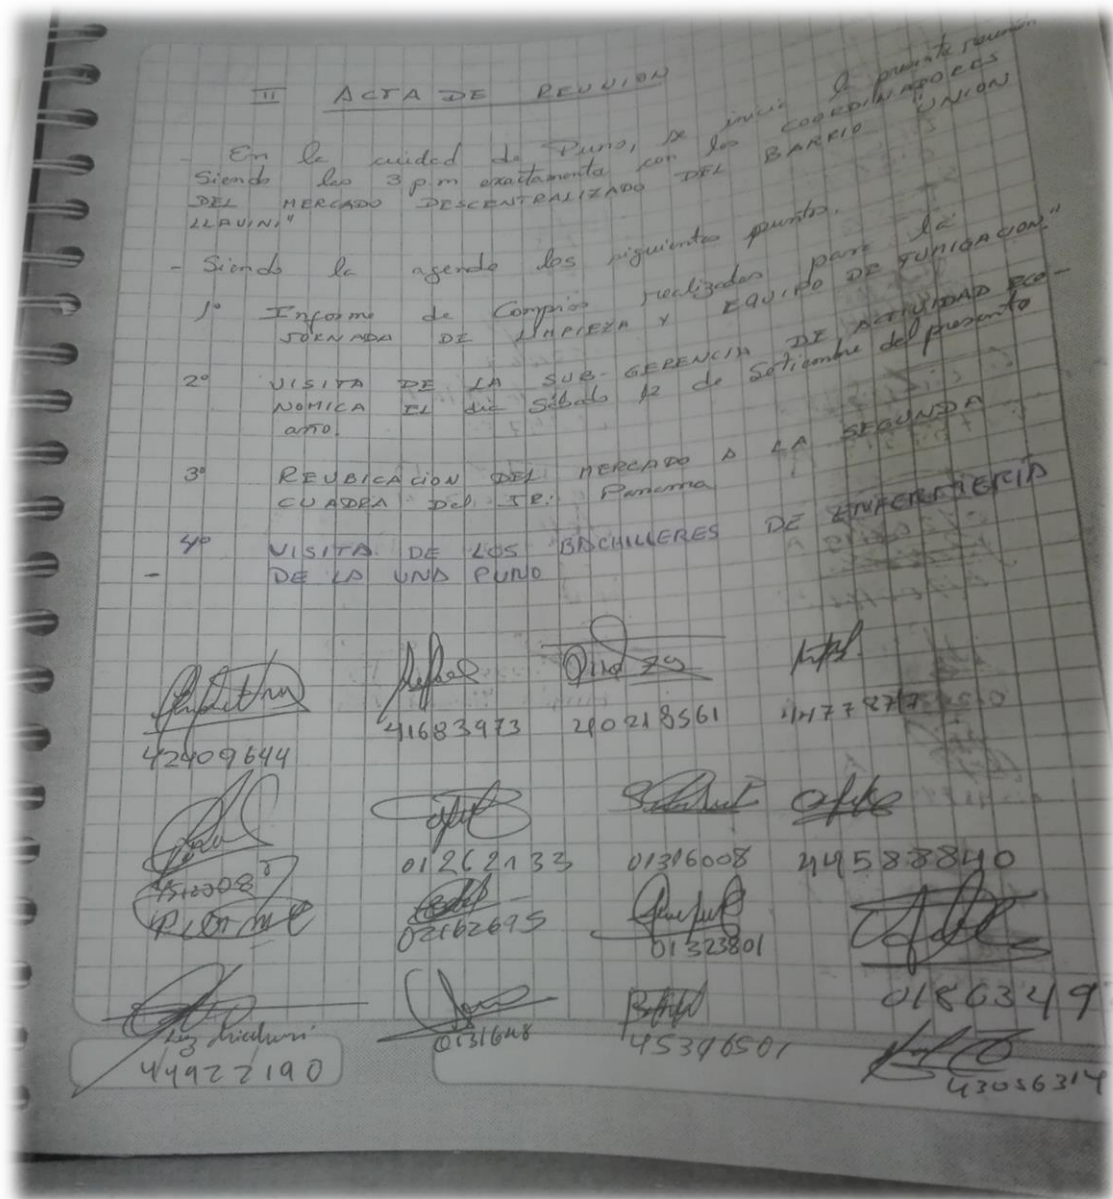 II ACTA DE REUNION
- En la cuidad de Puno, se inicia la presente reunión
Siendo las 3 p.m exactamente con los COORDINADORES
DEL MERCADO DESCENTRALIZADO DEL BARRIO "UNION
LLAVINI"
- Siendo la agenda los siguientes puntos.
1° Informe de Compras realizadas para la
JORNADA DE LIMPIEZA Y EQUIPO DE FUMIGACION."
2° VISITA DE LA SUB-GERENCIA DE ACTIVIDAD ECO-
NOMICA EL dia Sábado 12 de Setiembre del presente
año.
3° REUBICACION DEL MERCADO A LA SEGUNDA
CUADRA DEL JR: Panama
4° VISITA DE LOS BACHILLERES DE ENFERMERIA
- DE LA UNA PUNO
42409644 41683973 40218561
01262133 01316008 44588840
02162695 01323801
0186349
45396501
44922190 43056314